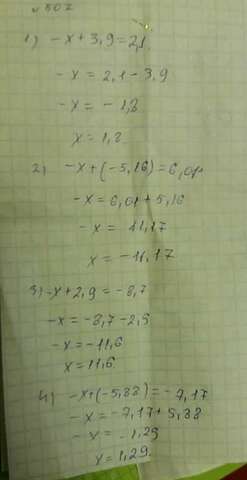 № 507
1) -x+3,9=2,1
-x = 2,1-3,9
-x = -1,8
x = 1,8
2) -x+(-5,16)=6,01
-x = 6,01+5,16
-x = 11,17
x = -11,17
3) -x+2,9=-8,7
-x=-8,7-2,9
-x=-11,6
x=11,6
4) -x+(-5,88)=-7,17
-x = -7,17+5,88
-x = -1,29
x=1,29.